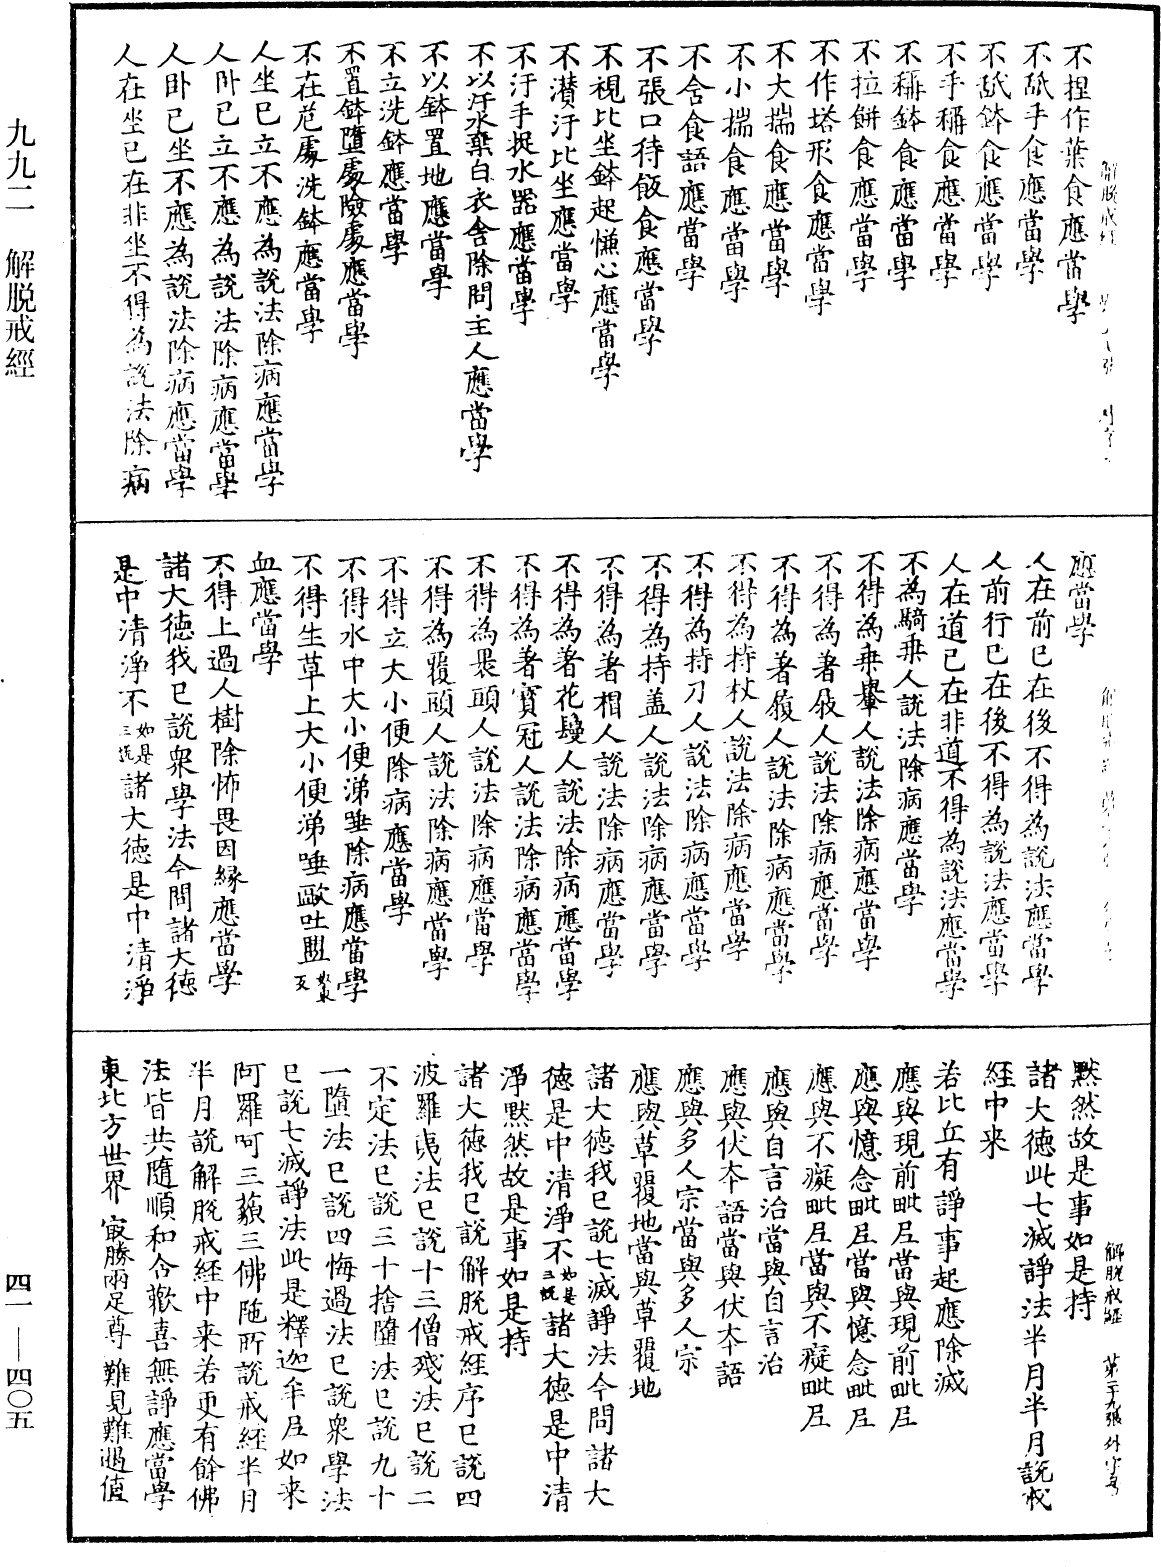 不捏作葉食應當學
不舐手食應當學
不舐鉢食應當學
不手稱食應當學
不稱鉢食應當學
不拉餅食應當學
不作塔形食應當學
不大揣食應當學
不小揣食應當學
不含食語應當學
不張口待飯食應當學
不視比坐鉢起慊心應當學
不濽汙比坐應當學
不汙手捉水器應當學
不以汙水棄白衣舍除問主人應當學
不以鉢置地應當學
不立洗鉢應當學
不置鉢墮處險處應當學
不在危處洗鉢應當學
人坐已立不應為說法除病應當學
人卧已立不應為說法除病應當學
人卧已坐不應為說法除病應當學
人在坐已在非坐不得為說法除病
應當學
人在前已在後不得為說法應當學
人前行已在後不得為說法應當學
人在道已在非道不得為說法應當學
不為騎乘人說法除病應當學
不得為乘轝人說法除病應當學
不得為著屐人說法除病應當學
不得為著履人說法除病應當學
不得為持杖人說法除病應當學
不得為持刀人說法除病應當學
不得為持盖人說法除病應當學
不得為著帽人說法除病應當學
不得為著花鬘人說法除病應當學
不得為著寶冠人說法除病應當學
不得為裹頭人說法除病應當學
不得為覆頭人說法除病應當學
不得立大小便除病應當學
不得水中大小便涕唾除病應當學
不得生草上大小便涕唾歐吐盥
血應當學
不得上過人樹除怖畏因緣應當學
諸大德我已說衆學法今問諸大德
是中清淨不如是三說諸大德是中清淨
默然故是事如是持
諸大德此七滅諍法半月半月說戒
經中来
若比丘有諍事起應除滅
應與現前毗尼當與現前毗尼
應與憶念毗尼當與憶念毗尼
應與不癡毗尼當與不癡毗尼
應與自言治當與自言治
應與伏本語當與伏本語
應與多人宗當與多人宗
應與草覆地當與草覆地
諸大德我已說七滅諍法今問諸大
德是中清淨不如是三說諸大德是中清
淨默然故是事如是持
諸大德我已說解脫戒經序已說四
波羅夷法已說十三僧殘法已說二
不定法已說三十捨墮法已說九十
一墮法已說四悔過法已說衆學法
已說七滅諍法此是釋迦牟尼如来
阿羅呵三藐三佛陁所說戒經半月
半月說解脫戒經中来若更有餘佛
法皆共隨順和合歡喜無諍應當學
東北方世界 㝡勝兩足尊 難見難過值
解脫戒經 第二十九張 外字号
九九二 解脫戒經
四一——四〇五